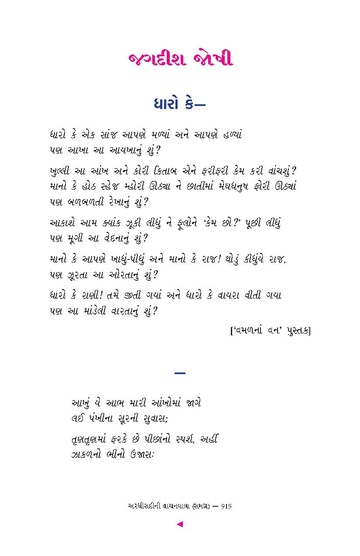 જગદીશ જોષી
ધારો કે—
ધારો કે એક સાંજ આપણે મળ્યાં અને આપણે હળ્યાં
પણ આખા આ આયખાનું શું?
ખુલ્લી આ આંખ અને કોરી કિતાબ એને ફરીફરી કેમ કરી વાંચશું?
માનો કે હોઠ સ્હેજ મ્હોરી ઊઠ્યા ને છાતીમાં મેઘધનુષ ફોરી ઊઠ્યાં
પણ બળબળતી રેખાનું શું?
આકાશે આમ ક્યાંક ઝૂકી લીધું ને ફૂલોને ‘કેમ છો?’ પૂછી લીધું
પણ મૂગી આ વેદનાનું શું?
માનો કે આપણે ખાધું-પીધું અને માનો કે રાજ! થોડું કીધુંયે રાજ,
પણ ઝૂરતા આ ઓરતાનું શું?
ધારો કે રાણી! તમે જીતી ગયાં અને ધારો કે વાયરા વીતી ગયા
પણ આ માંડેલી વારતાનું શું?
[‘વમળનાં વન’ પુસ્તક]
—
આખું યે આભ મારી આંખોમાં જાગે
લઈ પંખીના સૂરની સુવાસ;
તૃણતૃણમાં ફરકે છે પીછાંનો સ્પર્શ, અહીં
ઝાકળનો ભીનો ઉજાસઃ
અરધીસદીની વાચનયાત્રા (સમગ્ર) — 915